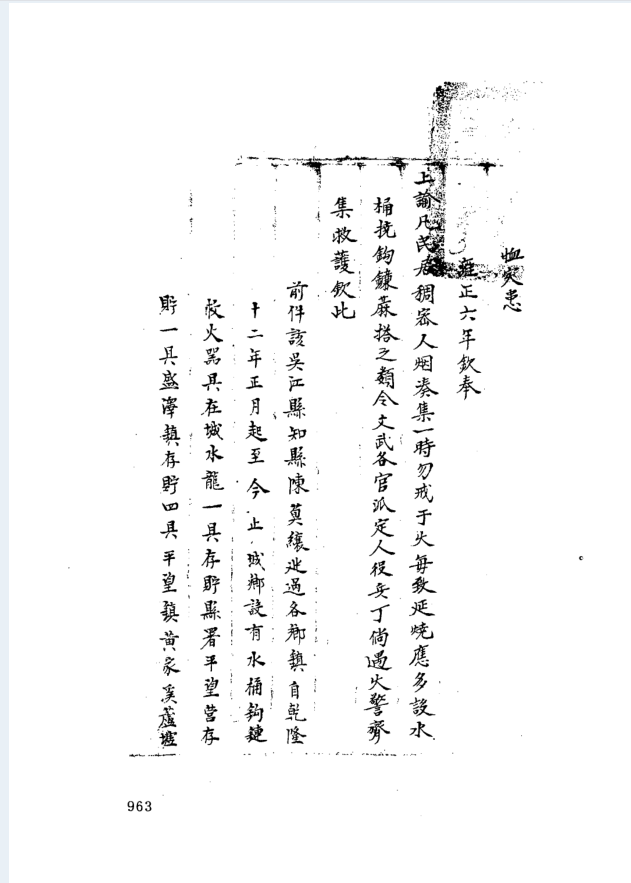 恤灾患
雍正六年欽奉
上諭凡民居稠密人烟湊集一時勿戒于火每致延燒應多設水
桶撓鈎鐮蔴搭之類令文武各官派定人役兵丁倘遇火警齊
集救護欽此
前件該吳江縣知縣陳奠纕迯過各鄉鎮自乾隆
十二年正月起至今止城鄉設有水桶鈎鏈
救火器具在城水龍一具存貯縣署平望營存
貯一具盛澤鎮存貯四具平望鎮黄家溪蘆墟
963